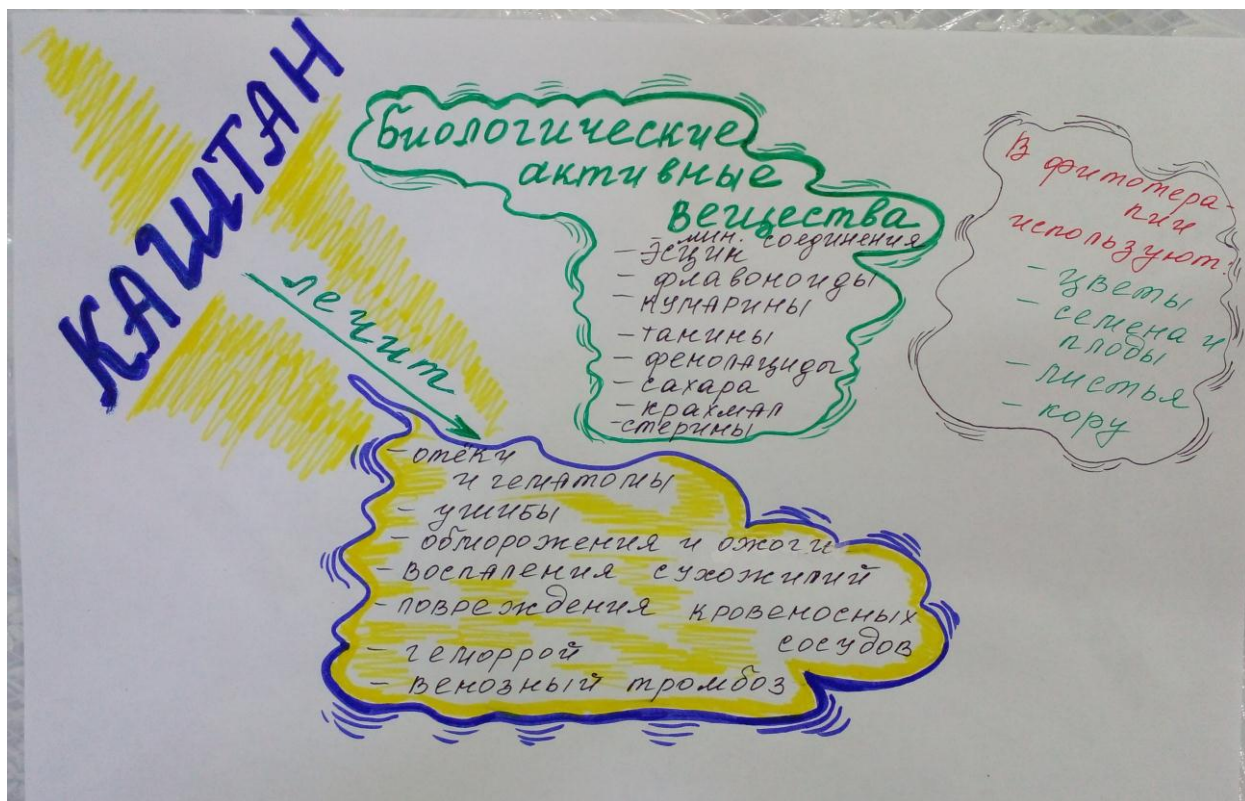 КАШТАН
лечит
Биологические
активные
вещества
- мин. соединения
- эсцин
- флавоноиды
- кумарины
- танины
- фенолациды
- сахара
- крахмал
- стерины
В фитотера-
пии
используют:
- цветы
- семена и
плоды
- листья
- кору
- отёки
и гематомы
- ушибы
- обморожения и ожоги
- воспаления сухожилий
- повреждения кровеносных
сосудов
- геморрой
- венозный тромбоз